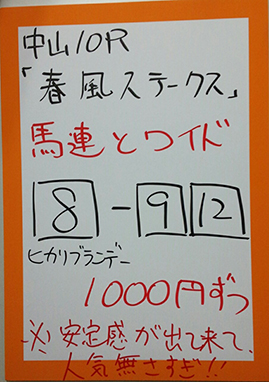 中山10R
「春風ステークス」
馬連とワイド
8-9 12
ヒカリブランデー
1000円ずつ
※安定感が出て来て、
人気無さすぎ!!